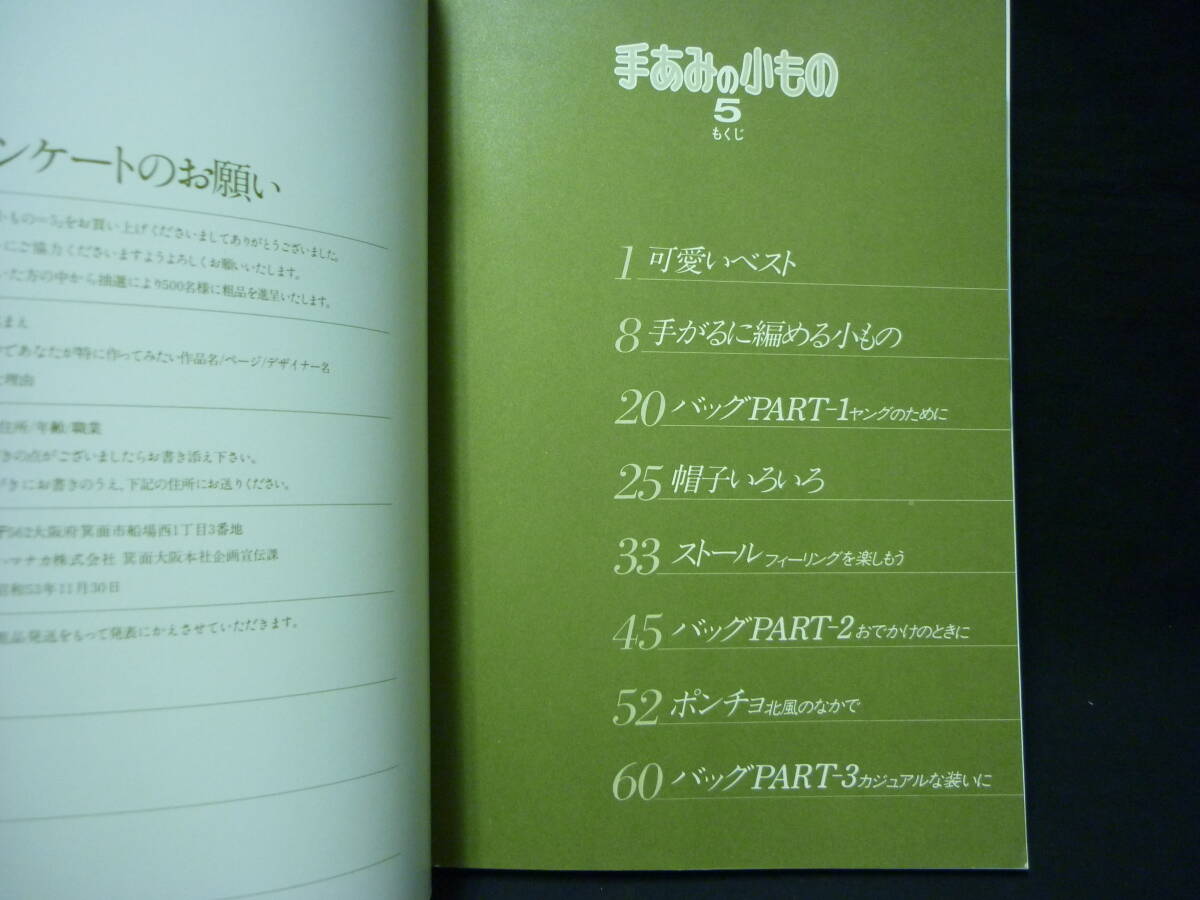 ンケートのお願い
小もの=5』をお買い上げくださいましてありがとうございました。
にご協力くださいますようよろしくお願いいたします。
いた方の中から抽選により500名様に粗品を進呈いたします。
まえ
であなたが特に作ってみたい作品名/ページ/デザイナー名
理由
住所/年齢/職業
きの点がございましたらお書き添え下さい。
がきにお書きのうえ、下記の住所にお送りください。
〒562大阪府箕面市船場西1丁目3番地
ハマナカ株式会社 箕面大阪本社企画宣伝課
昭和53年11月30日
粗品発送をもって発表にかえさせていただきます。
手あみの小もの
5
もくじ
1 可愛いベスト
8 手がるに編める小もの
20 バッグPART-1ヤングのために
25 帽子いろいろ
33 ストール フィーリングを楽しもう
45 バッグPART-2おでかけのときに
52 ポンチョ北風のなかで
60 バッグPART-3カジュアルな装いに